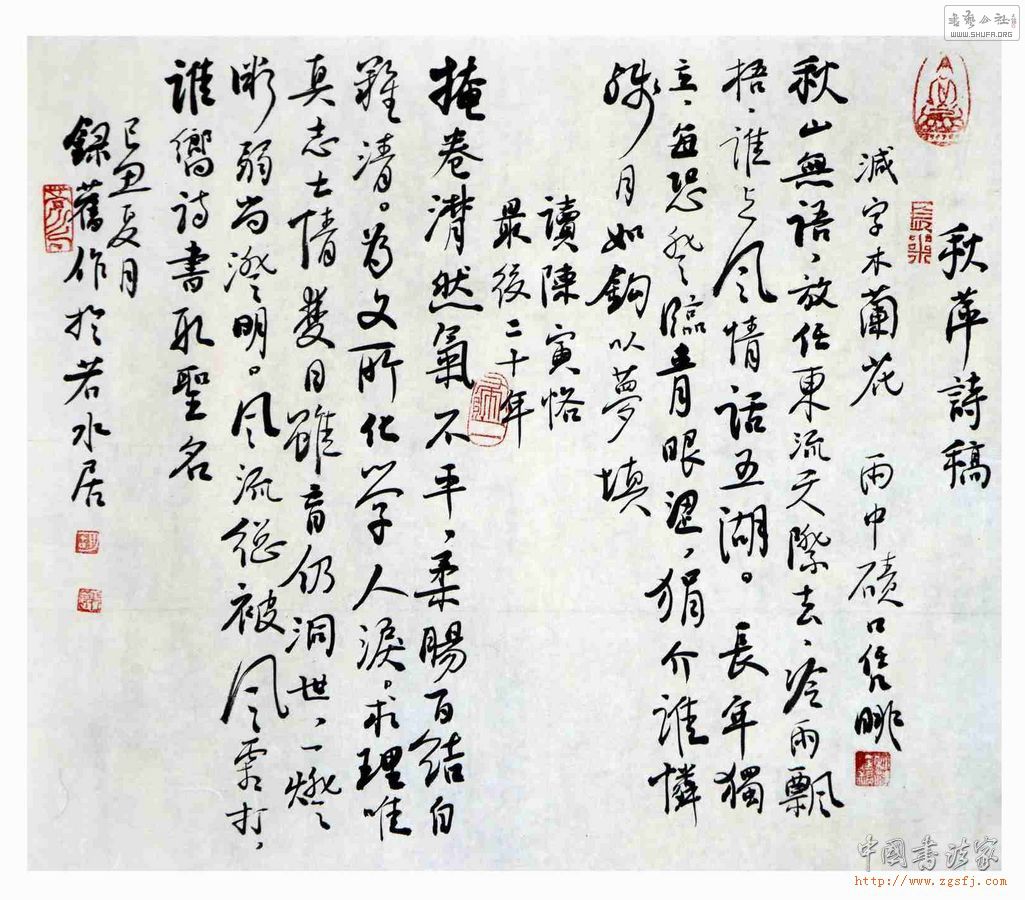 秋萍詩稿
減字木蘭花 雨中磧口修眺
秋山無語，放任東流天際去，冷雨飄
梧，誰與風情話五湖。長年獨
立，每恐登臨青眼澀，狷介誰憐
殘月如鉤以夢填
讀陳寅恪
最後二十年
掩卷潸然氣不平，柔腸百結自
難清。為文所化學人淚。求理唯
真志士情雙目雖盲仍洞世，一燈
漸弱尚澄明。風流總被風霜打，
誰嚮詩書取聖名
己丑夏月
錄舊作於若水居
書藝公社
WWW.SHUFA.ORG
中國書法家
http://www.zgsfj.com